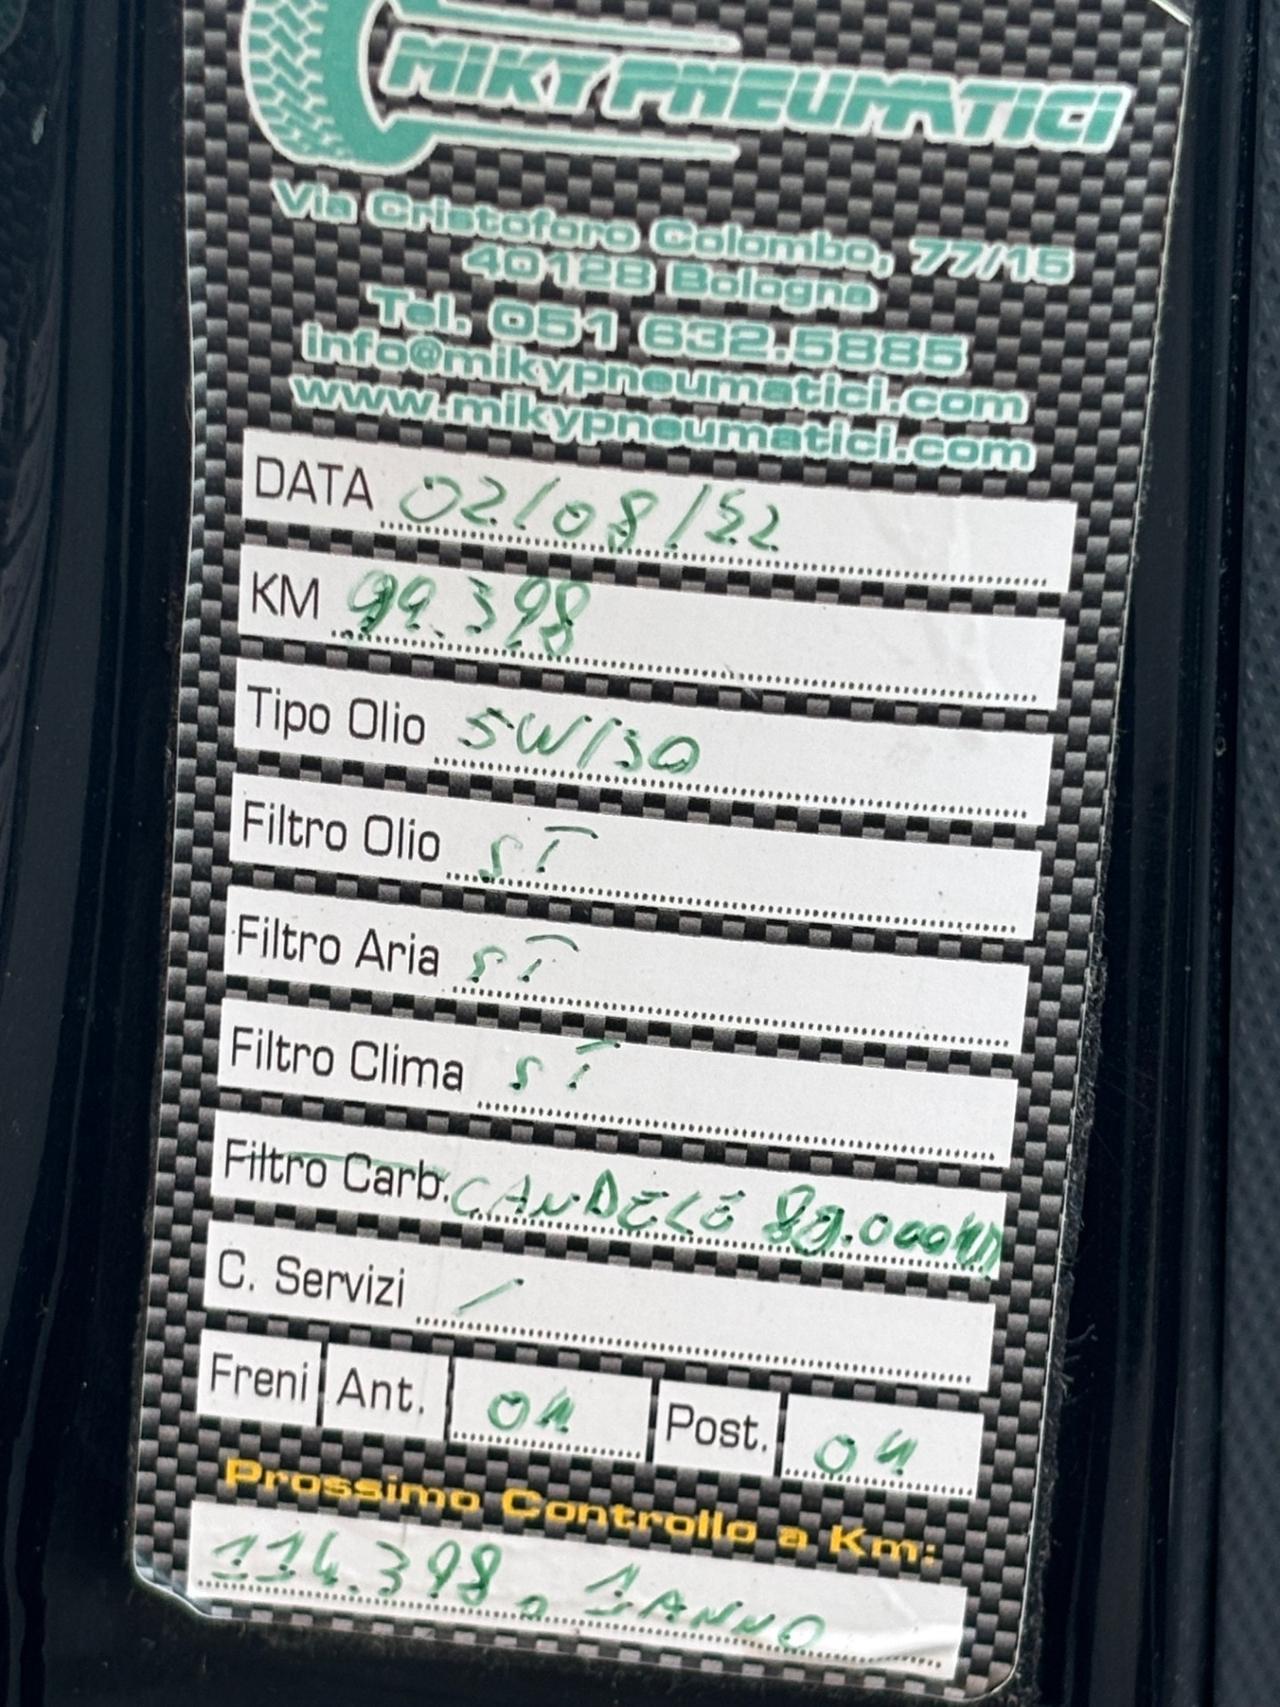 MIKY PNEUMATICI
Via Cristoforo Colombo, 77/15
40128 Bologna
Tel. 051 632.5885
info@mikypneumatici.com
www.mikypneumatici.com
DATA 02/08/22
KM 99.398
Tipo Olio 5W/30
Filtro Olio SI
Filtro Aria SI
Filtro Clima SI
Filtro Carb. CANDELE 89.000KM
C. Servizi /
Freni Ant. OK Post. OK
Prossimo Controllo a Km:
114.398 o 1 ANNO